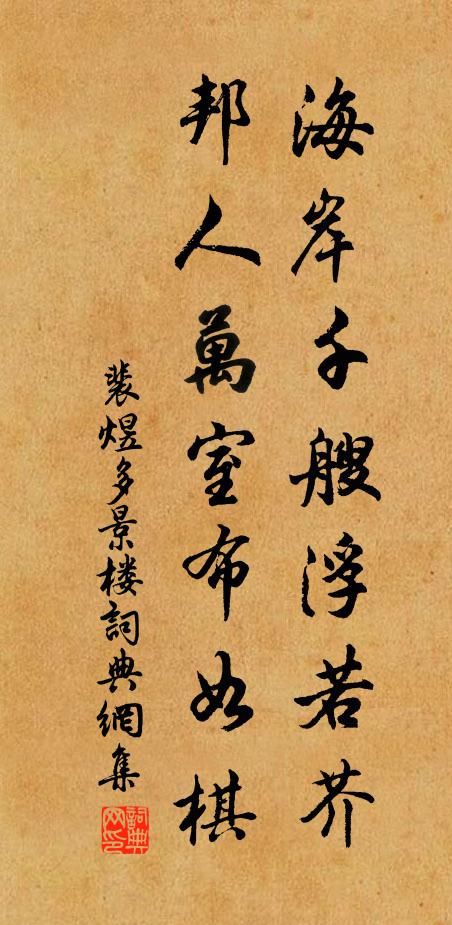 海岸千艘浮若芥
邦人萬室布如棋
裴煜多景楼詞典網集
詞典网印